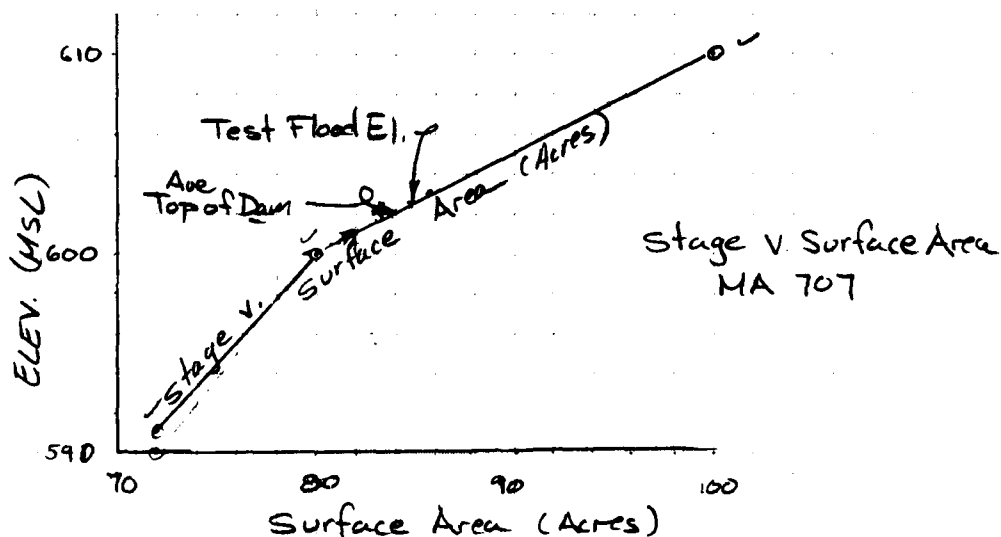 610
Test Flood El.
Ave
Top of Dam
Stage v. Surface Area (Acres)
ELEV. (MSL)
600
Stage v Surface Area
MA 707
590
70 80 90 100
Surface Area (Acres)